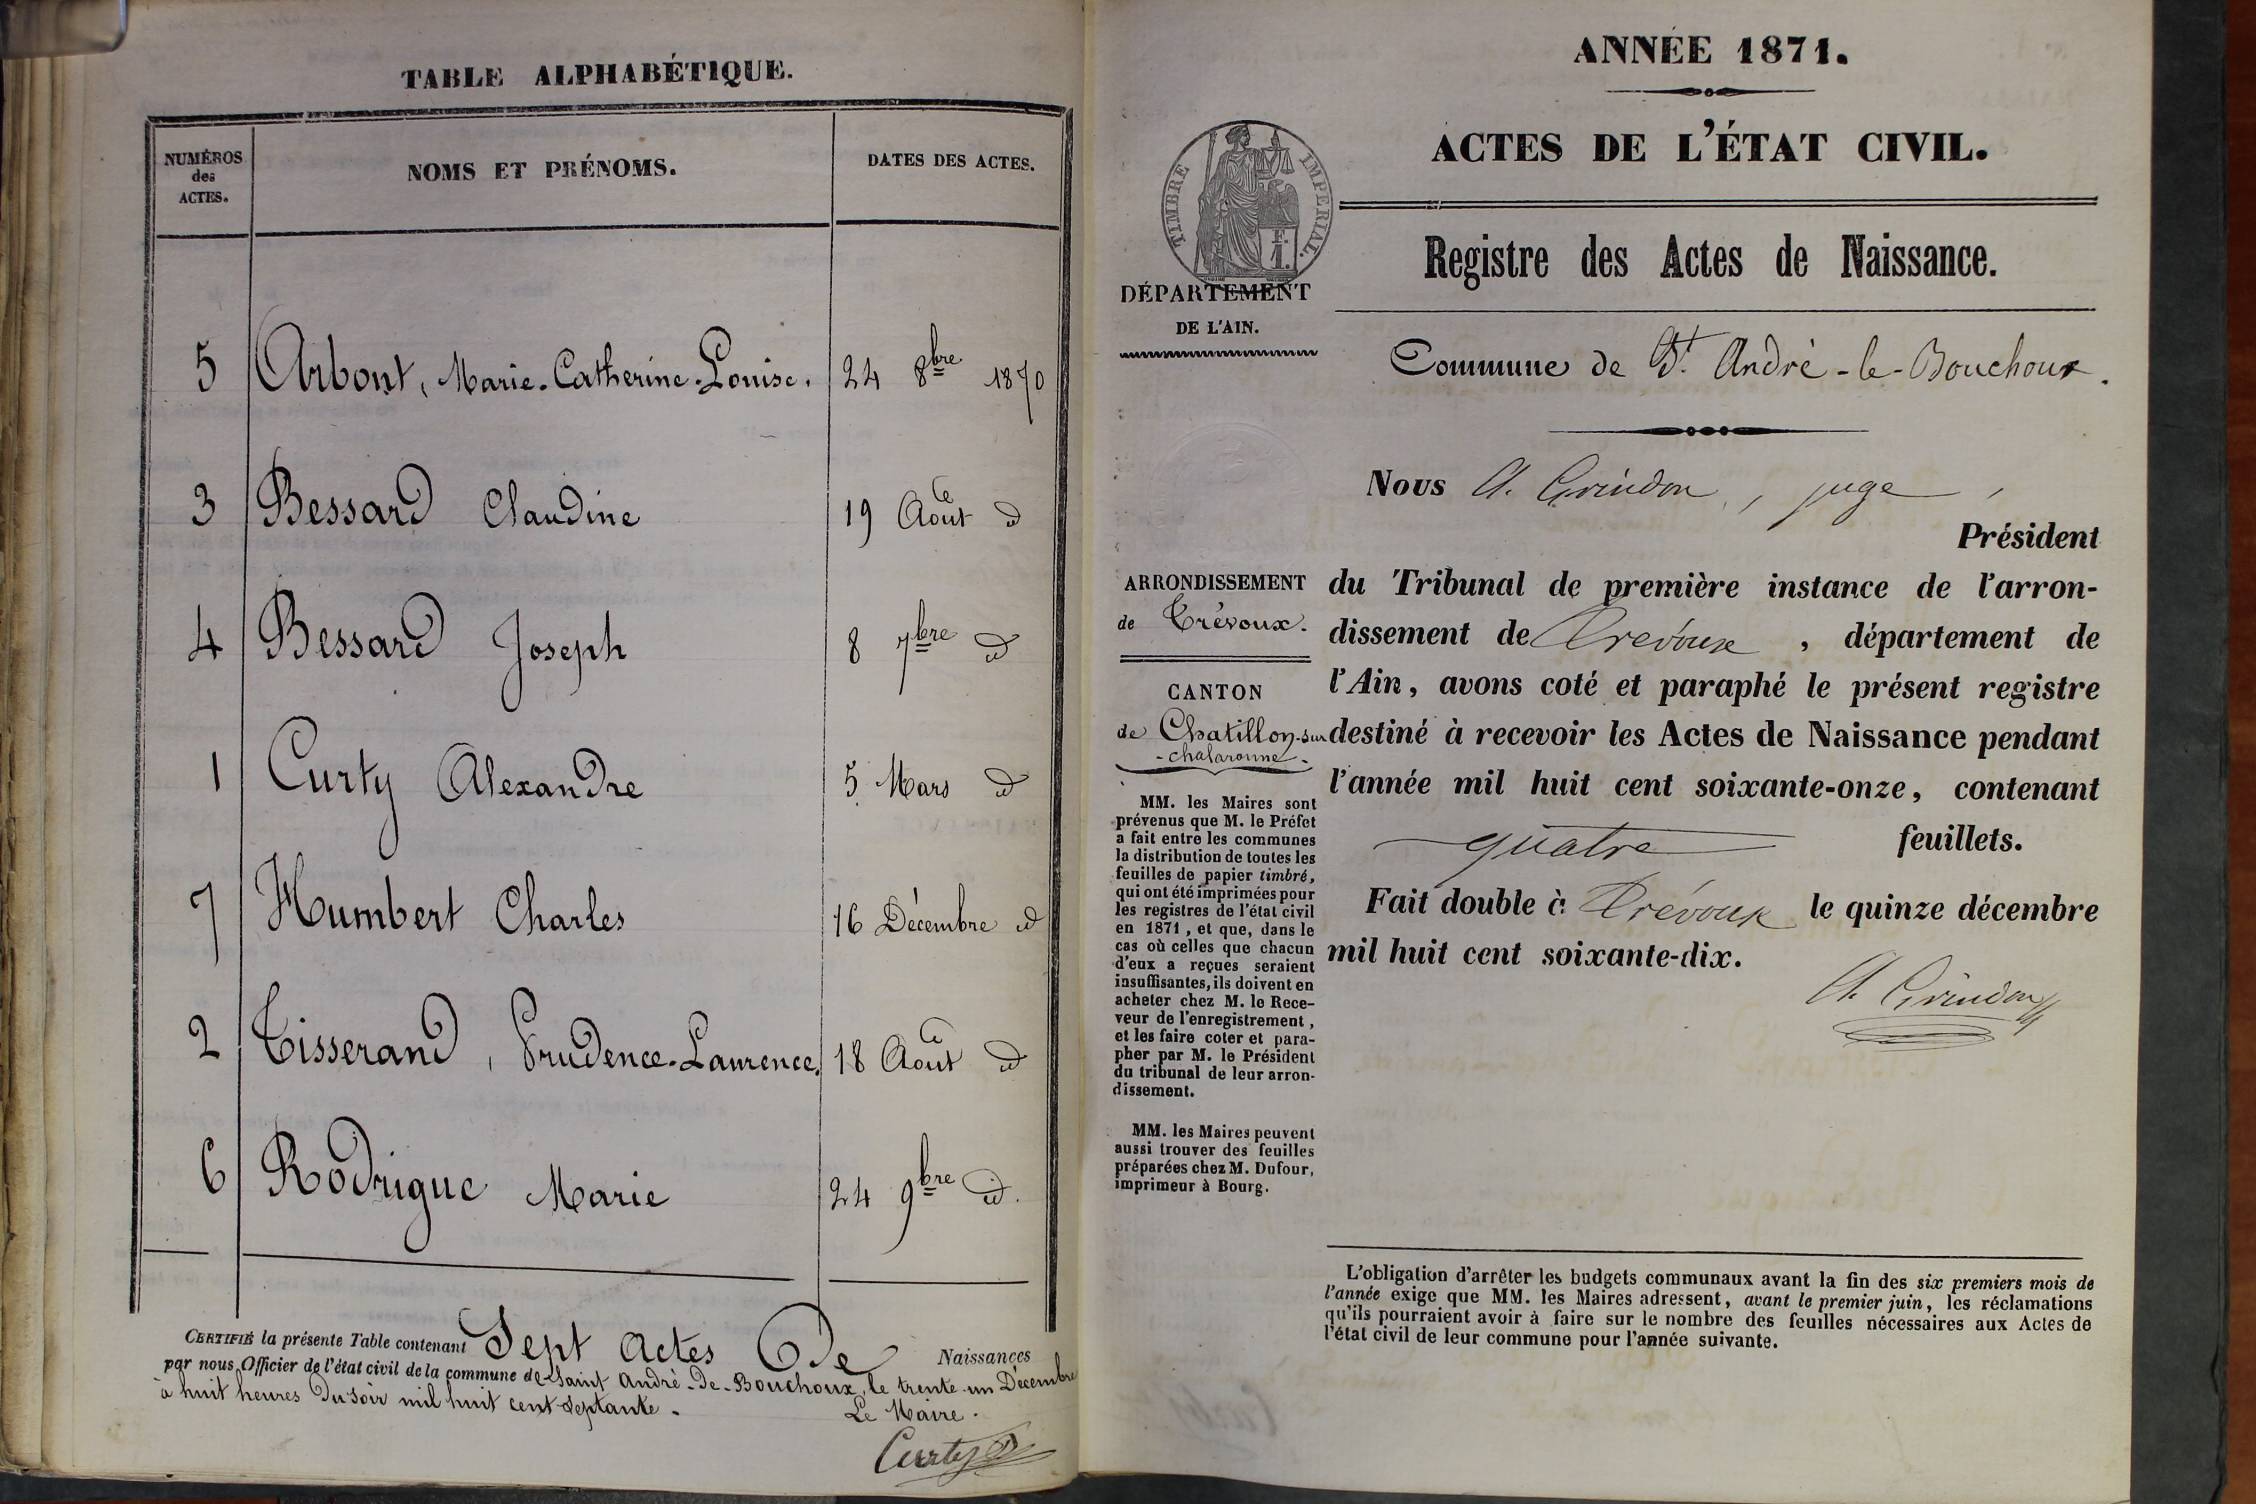 TABLE ALPHABÉTIQUE.
NUMÉROS des ACTES.
NOMS ET PRÉNOMS.
DATES DES ACTES.
5 Arbont, Marie-Catherine-Louise. 24 8bre 1870
3 Bessard Claudine 19 Août d
4 Bessard Joseph 8 7bre d
1 Curty Alexandre 5 Mars d
7 Humbert Charles 16 Décembre d
2 Tisserand, Prudence-Laurence. 18 Août d
6 Rodrigue Marie 24 9bre d.
CERTIFIÉ la présente Table contenant Sept actes De Naissances
par nous Officier de l'état civil de la commune de Saint André-De-Bouchoux, le trente-un Décembre
à huit heures Du soir mil huit cent septante.
Le Maire.
Curty
ANNÉE 1871.
ACTES DE L'ÉTAT CIVIL.
TIMBRE IMPERIAL.
F.
1.
Registre des Actes de Naissance.
DÉPARTEMENT
DE L'AIN.
Commune de St. André-le-Bouchoux.
Nous A. Grindon, juge,
Président
ARRONDISSEMENT
de Trévoux.
du Tribunal de première instance de l'arron-
dissement de Trévoux, département de
l'Ain, avons coté et paraphé le présent registre
destiné à recevoir les Actes de Naissance pendant
l'année mil huit cent soixante-onze, contenant
quatre feuillets.
Fait double à Trévoux le quinze décembre
mil huit cent soixante-dix.
A. Grindon
CANTON
de Chatillon-sur
-chalaronne-
MM. les Maires sont
prévenus que M. le Préfet
a fait entre les communes
la distribution de toutes les
feuilles de papier timbré,
qui ont été imprimées pour
les registres de l'état civil
en 1871, et que, dans le
cas où celles que chacun
d'eux a reçues seraient
insuffisantes, ils doivent en
acheter chez M. le Rece-
veur de l'enregistrement,
et les faire coter et para-
pher par M. le Président
du tribunal de leur arron-
dissement.
MM. les Maires peuvent
aussi trouver des feuilles
préparées chez M. Dufour,
imprimeur à Bourg.
L'obligation d'arrêter les budgets communaux avant la fin des six premiers mois de
l'année exige que MM. les Maires adressent, avant le premier juin, les réclamations
qu'ils pourraient avoir à faire sur le nombre des feuilles nécessaires aux Actes de
l'état civil de leur commune pour l'année suivante.